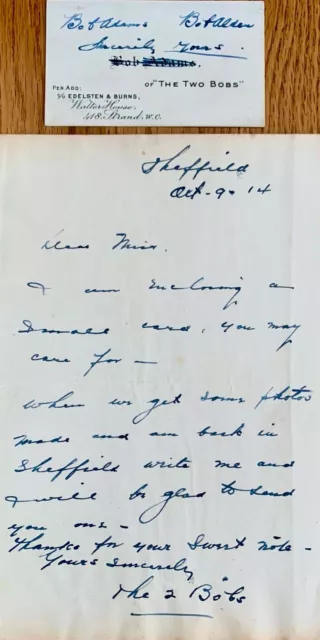 Bob Adams Bob Alden
Sincerely Yours
Bob Adams.
OF "THE TWO BOBS"
PER. ADD:
c/o EDELSTEN & BURNS,
Walter House,
418, Strand, W.C.
Sheffield
Oct - 9 - 14
Dear Miss.
I am enclosing a
small card, you may
care for —
when we get some photos
made and am back in
Sheffield write me and
I will be glad to send
you one -
Thanks for your sweet note -
Yours Sincerely
The 2 Bobs